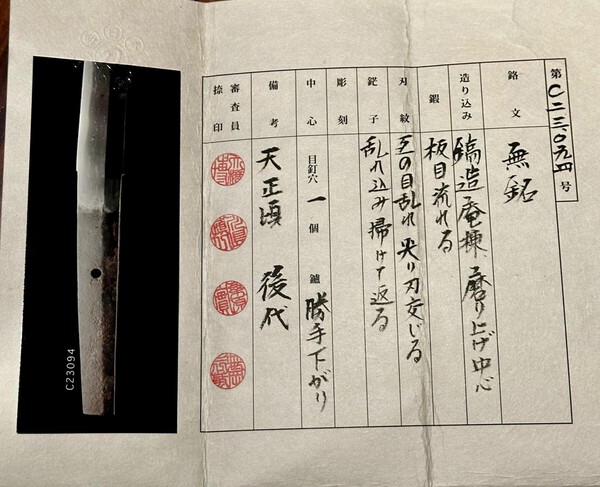 第〇二三〇九四号
銘文 無銘
造り込み 鎬造庵棟、磨り上げ中心
鍛 板目流れる
刃紋 互の目乱れ尖り刃交じる
鋩子 乱れ込み掃けて返る
彫刻
中心 目釘穴 一 個 鑢 勝手下がり
備考 天正頃 後代
審査員捺印
C23094